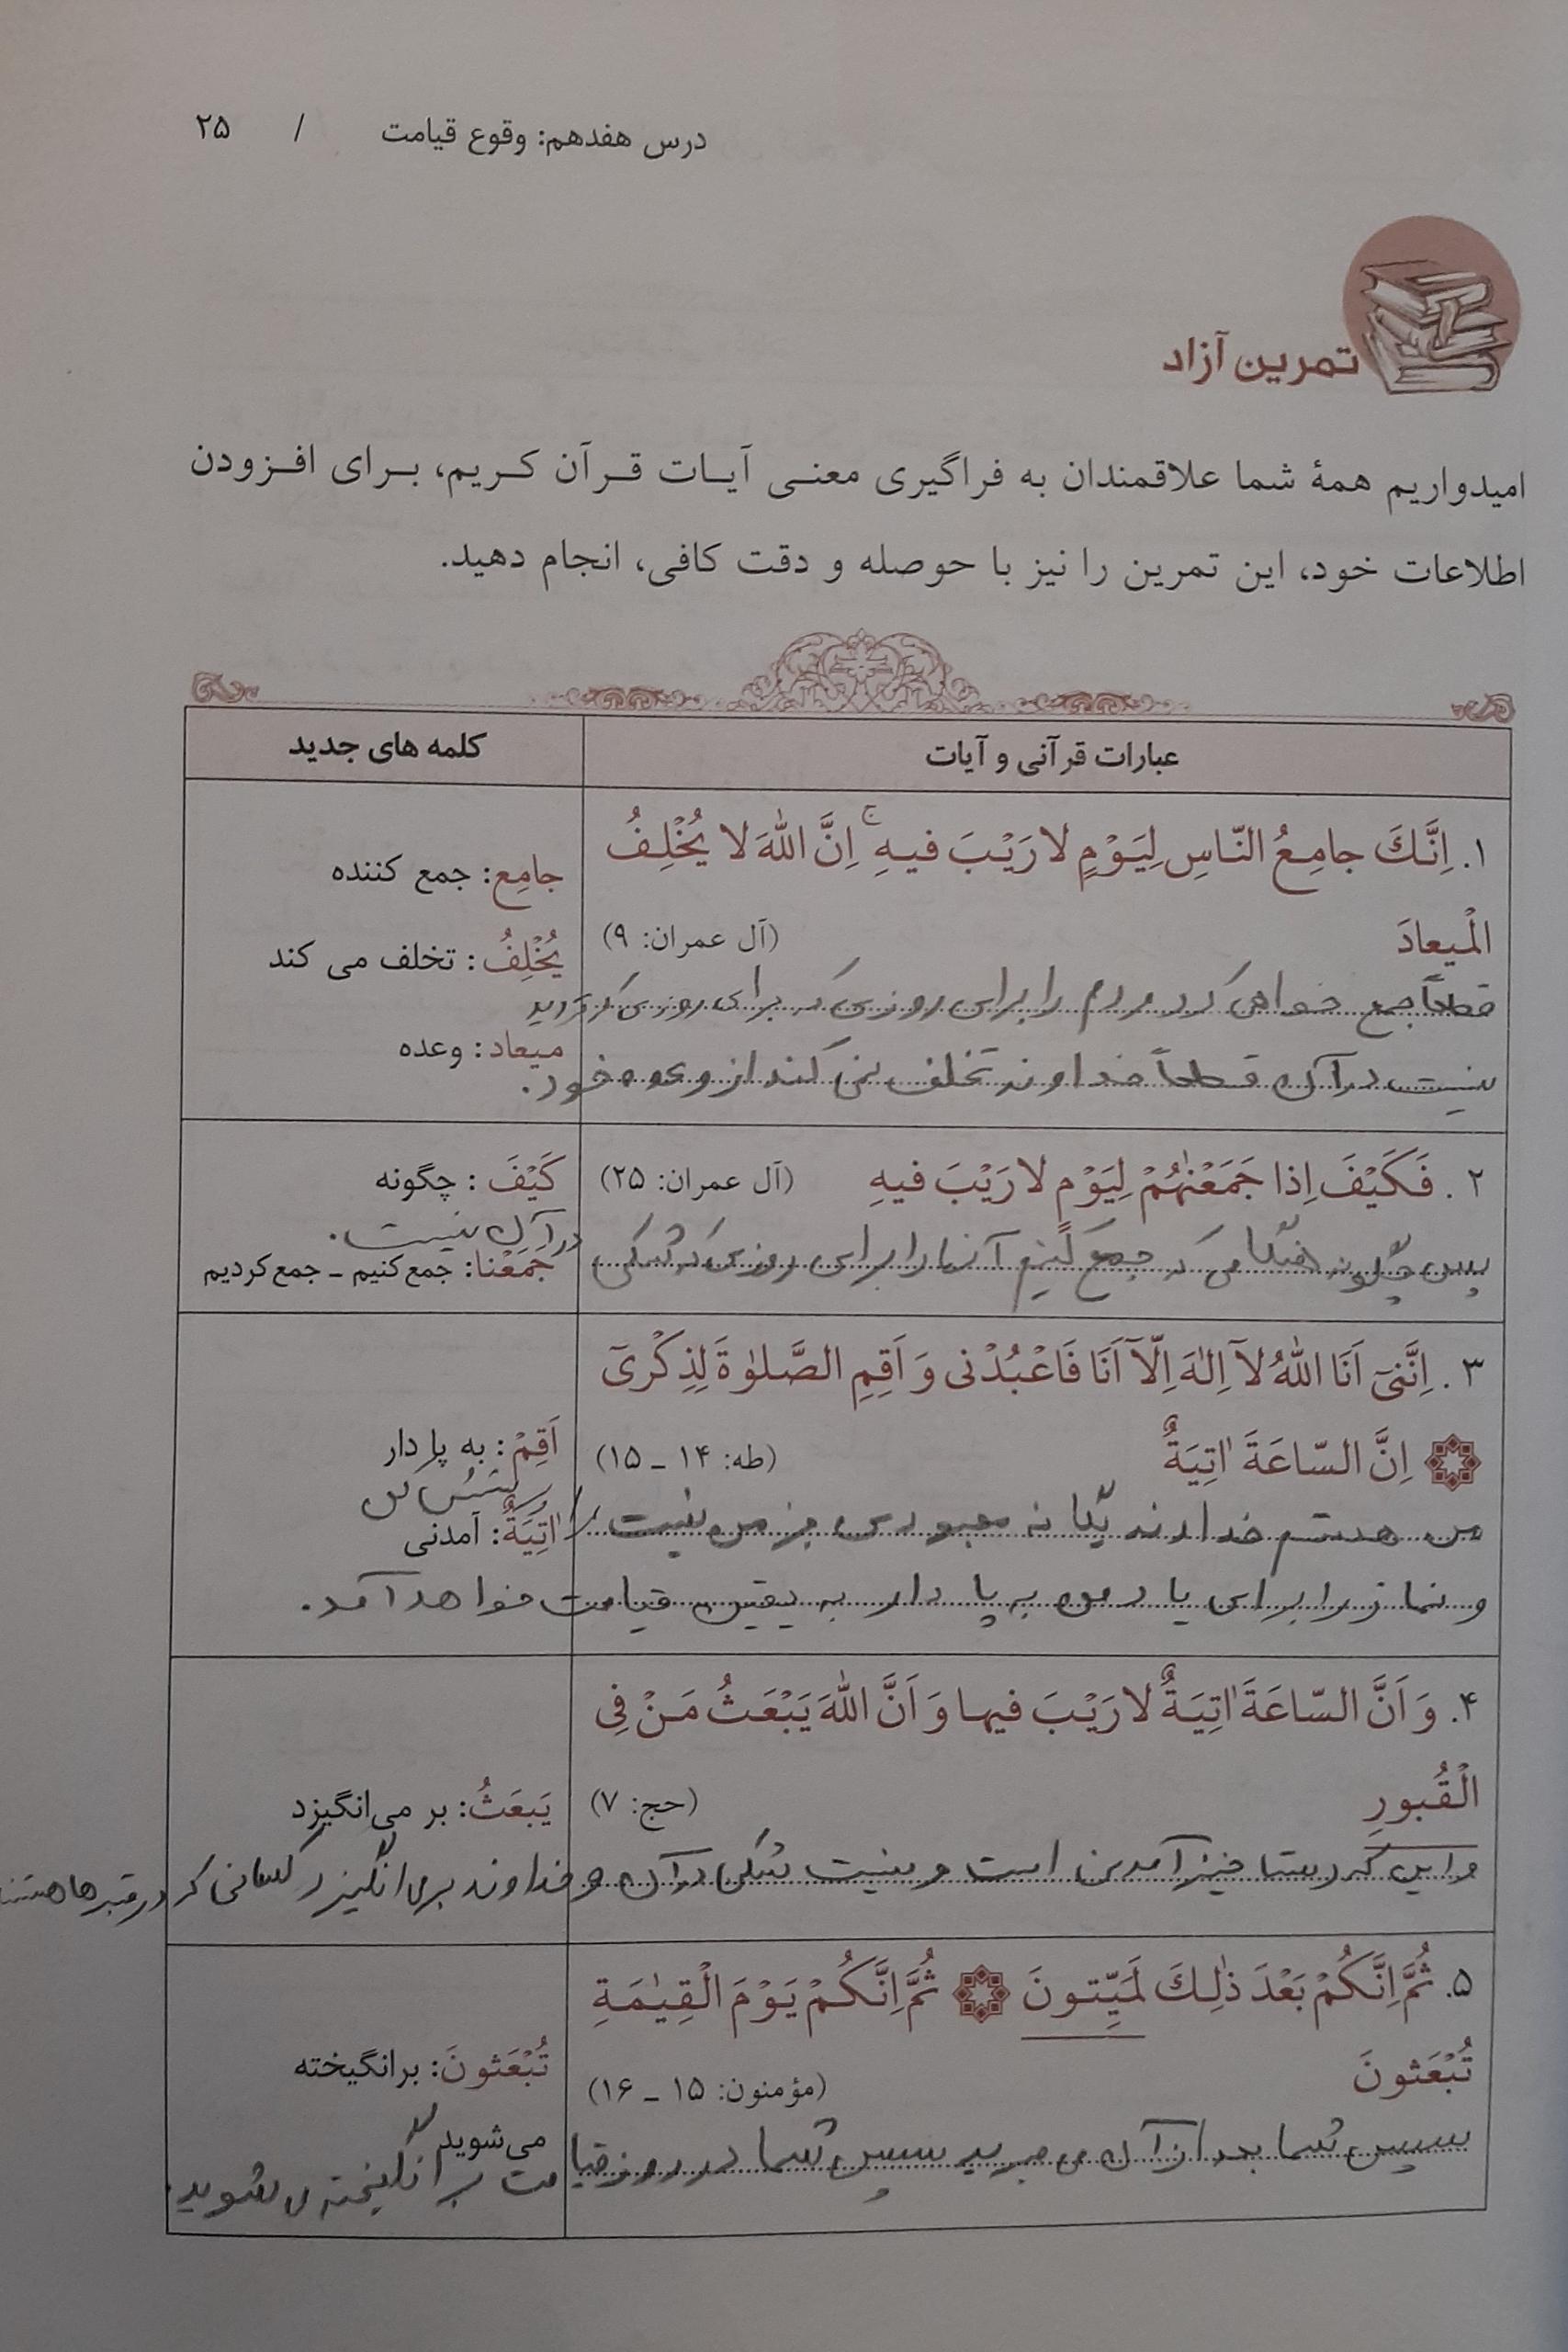 درس هفدهم: وقوع قیامت / ۲۵
تمرین آزاد
امیدواریم همهٔ شما علاقمندان به فراگیری معنی آیات قرآن کریم، برای افزودن
اطلاعات خود، این تمرین را نیز با حوصله و دقت کافی، انجام دهید.
عبارات قرآنی و آیات
کلمه های جدید
۱. اِنَّكَ جامِعُ النّاسِ لِيَوْمٍ لا رَيْبَ فيهِ ۚ اِنَّ اللّٰهَ لا يُخْلِفُ
الْميعادَ (آل عمران: ۹)
قطعاً جمع خواهی کرد مردم را برای روزی که برای روزی که تردید
نیست در آن قطعاً خداوند تخلف نمی کند از وعده خود.
جامِع: جمع کننده
يُخْلِفُ: تخلف می کند
میعاد: وعده
۲. فَكَيْفَ اِذا جَمَعْنٰهُمْ لِيَوْمٍ لا رَيْبَ فيهِ (آل عمران: ۲۵)
پس چگونه هنگامی که جمع کنیم آنها را برای روزی که شکی
در آن نیست.
كَيْفَ: چگونه
جَمَعْنا: جمع کنیم ـ جمع کردیم
۳. اِنَّنىٓ اَنَا اللّٰهُ لآ اِلٰهَ اِلّآ اَنَا فَاعْبُدْنى وَ اَقِمِ الصَّلوٰةَ لِذِكْرىٓ
اِنَّ السّاعَةَ ءاتِيَةٌ (طه: ۱۴ ـ ۱۵)
من هستم خداوند یگانه معبودی جز من نیست
و نماز را برای یاد من به پا دار به یقین قیامت خواهد آمد.
اَقِمْ: به پا دار
ءاتِيَةٌ: آمدنی
۴. وَ اَنَّ السّاعَةَ ءاتِيَةٌ لا رَيْبَ فيها وَ اَنَّ اللّٰهَ يَبْعَثُ مَنْ فِى
الْقُبورِ (حج: ۷)
و این که رستاخیز آمدنی است و نیست شکی در آن و خداوند برمی انگیزد کسانی که در قبرها هستند
يَبعَثُ: بر می‌انگیزد
۵. ثُمَّ اِنَّكُمْ بَعْدَ ذٰلِكَ لَمَيِّتونَ ثُمَّ اِنَّكُمْ يَوْمَ الْقِيٰمَةِ
تُبْعَثونَ (مؤمنون: ۱۵ ـ ۱۶)
سپس شما بعد از آن می میرید سپس شما در روز قیا
مت برانگیخته می شوید.
تُبْعَثونَ: برانگیخته
می‌شوید